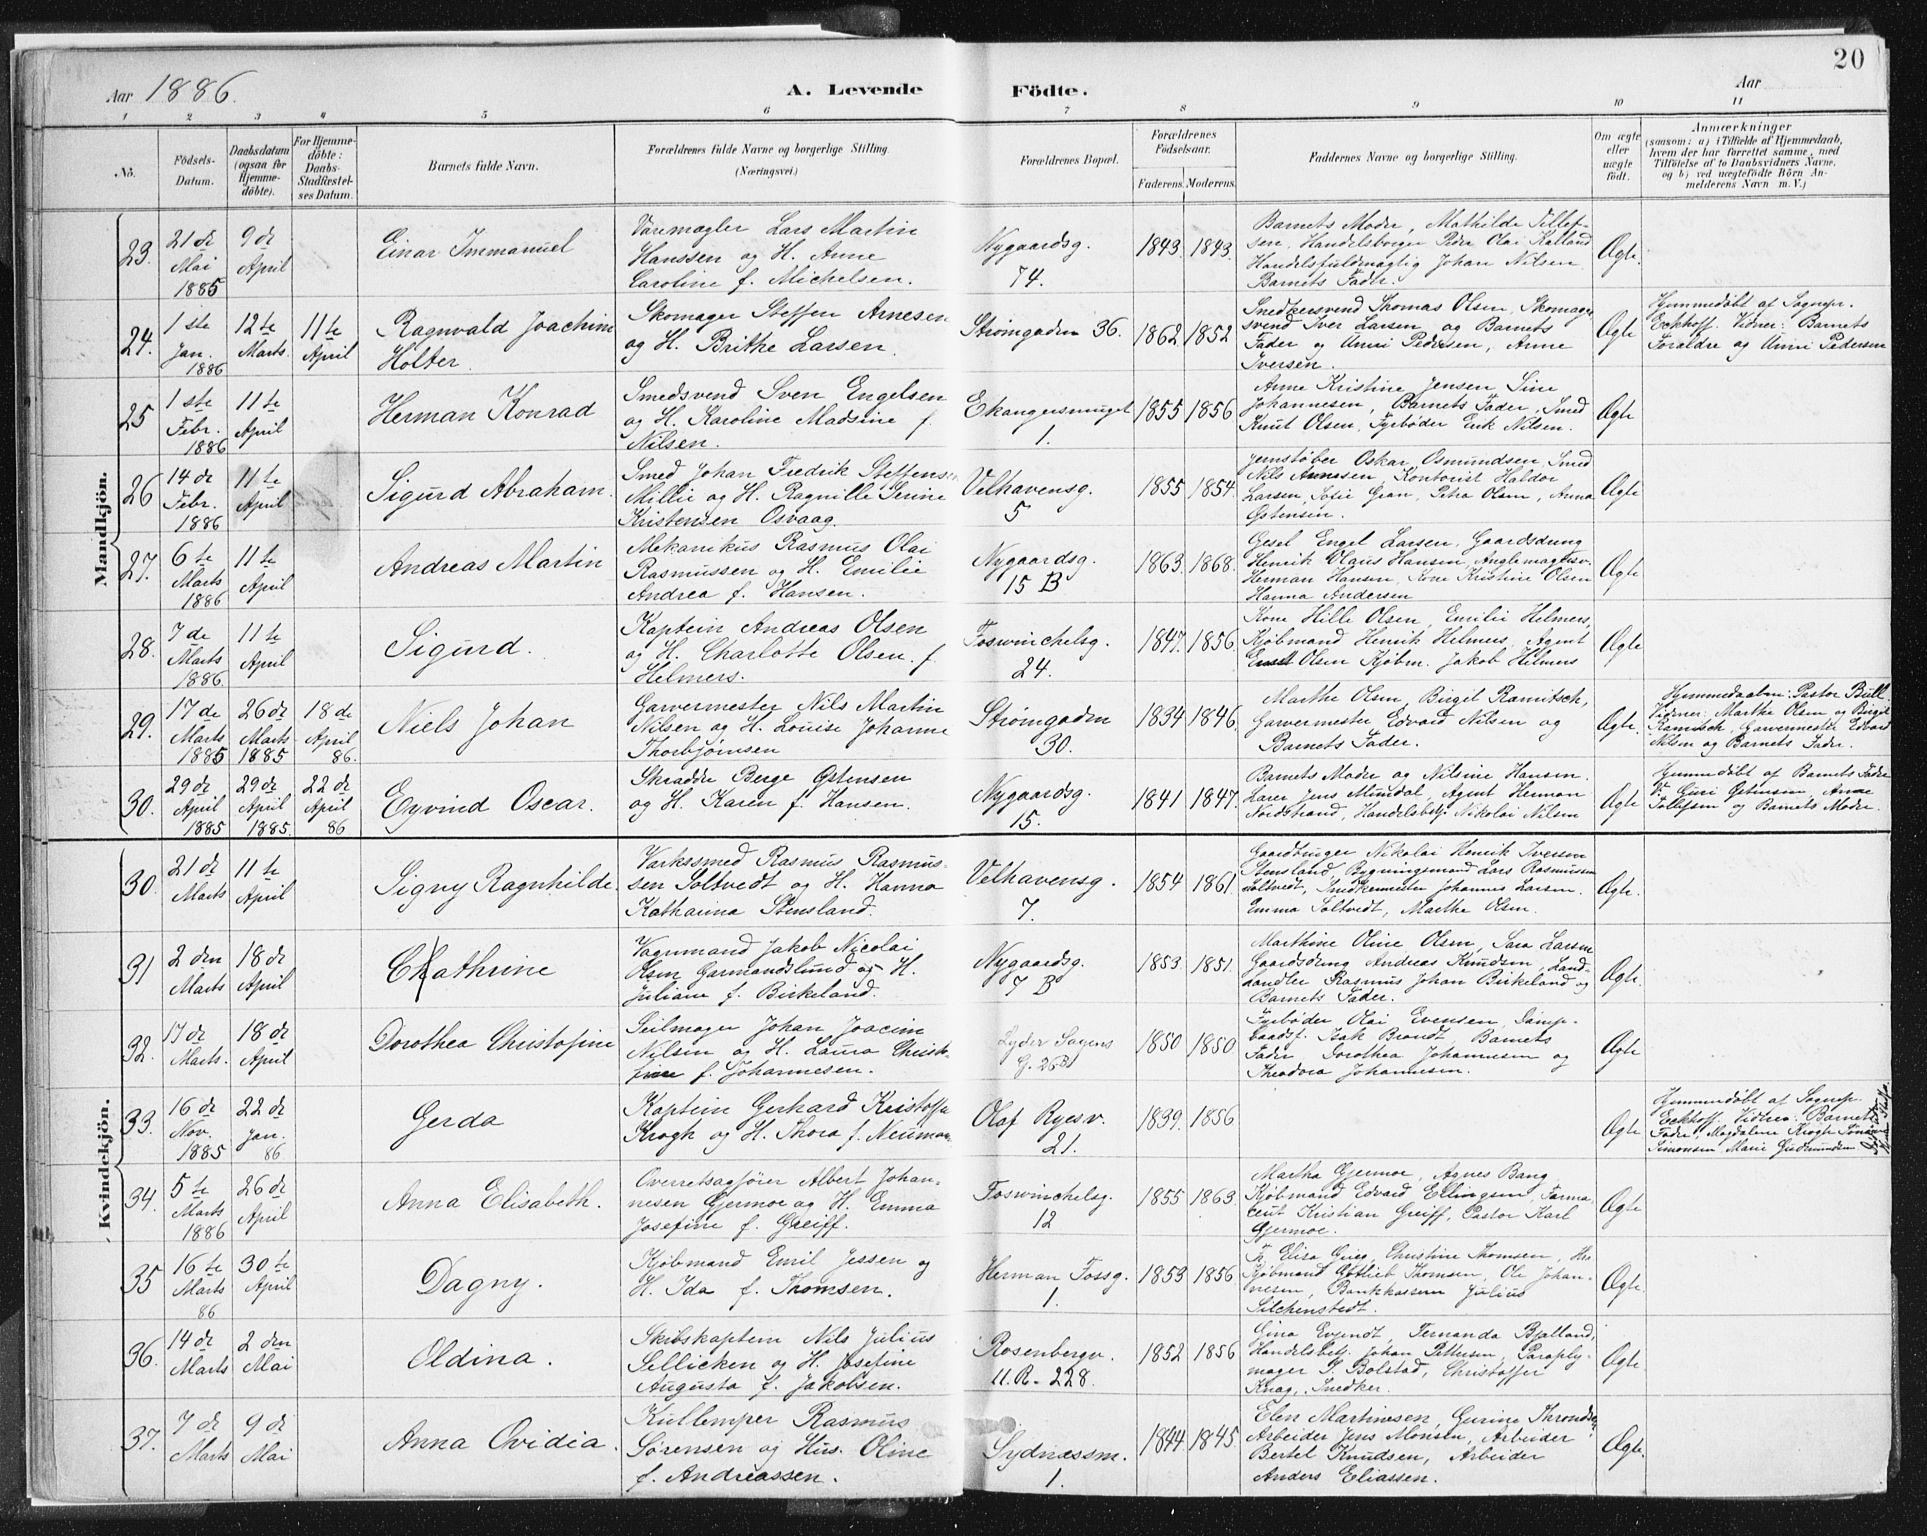 20
Aar 1886.
A. Levende Födte.
Aar
1 2 3 4 5 6 7 8 9 10 11
No.
Födsels-Datum.
Daabsdatum (ogsaa for Hjemme-döbte).
For Hjemme-döbte: Daabs-Stadfæstelses Datum.
Barnets fulde Navn.
Forældrenes fulde Navne og borgerlige Stilling. (Næringsvei.)
Forældrenes Bopæl.
Forældrenes Födselsaar.
Faderens. Moderens.
Faddernes Navne og borgerlige Stilling.
Om ægte eller uægte födt.
Anmærkninger
(saasom: a) i Tilfælde af Hjemmedaab, hvem der har forrettet samme, med Tilföielse af to Daabsvidners Navne, og b) ved uægtefödte Börn Anmelderens Navn m. V.)
Mandkjön.
23. 21 de Mai 1885 9 de April
Einar Immanuel
Varemægler Lars Martin
Hanssen og H. Anne
Caroline f. Michelsen.
Nygaardsg. 74.
1843. 1843.
Barnets Moder, Mathilde Tellef-
sen, Handelsborger Peder Olai Kalland
Handelsfuldmægtig Johan Nilsen
Barnets Fader.
Ægte.
24. 1 ste Jan. 1886 12 te Marts. 11 te April
Ragnvald Joachim
Holter.
Skomager Steffen Arnesen
og H. Brithe Larsen.
Strømgaden 36.
1862 1852
Snedkersvend Thomas Olsen, Skomager
svend Iver Larsen, og Barnets
Fader og Anni Pedersen, Anne
Iversen.
Ægte
Hjemmedøbt af Sognepr.
Eckhoff. Vidner: Barnets
Forældre og Anni Pedersen
25 1 ste Febr. 1886 11 te April
Herman Konrad
Smedsvend Sven Engelsen
og H. Karoline Madsine f.
Nilsen.
Ekangersmuget 1.
1855 1856
Anne Kristine Jensen Sine
Johannesen, Barnets Fader, Smed
Knut Olsen, Fyrbøder Erik Nilsen.
Ægte
26 14 de Febr. 1886 11 te April
Sigurd Abraham.
Smed Johan Fredrik Steffensen
Millie og H. Ragnille Serine
Kristensen Osvaag.
Velhavensg. 5
1855 1854.
Jernstøber Oskar Osmundsen, Smed
Nils Annesen, Kontorist Haldor
Larsen, Sofie Gran, Petra Olsen, Anna
Østensen.
Ægte
27. 6 te Marts 1886 11 te April
Andreas Martin
Mekanikus Rasmus Olai
Rasmussen og H. Emilie
Andrea f. Hansen.
Nygaardsg. 15 B
1863. 1868.
Gesel Engel Larsen, Gaardsdreng
Henrik Olaus Hansen,
Herman Hansen, Kone Kristine Olsen
Hanna Andersen
Ægte
28. 7 de Marts 1886. 11 te April
Sigurd.
Kaptein Andreas Olsen
og H. Charlotte Olsen f.
Helmers.
Foswinchelsg. 24.
1847. 1856.
Kone Hille Olsen, Emilie Helmers,
Kjøbmand Henrik Helmers, Agent
Olsen Kjøbm. Jakob Helmers
Ægte
29. 17 de Marts 1885 26 de Marts 1885 18 de April 86.
Niels Johan
Garvermester Nils Martin
Nilsen og H. Louise Johanne
Thorbjørnsen
Strømgaden 30.
1834 1846.
Marthe Olsen, Birgit Ramitsch,
Garvermester Edvard Nilsen og
Barnets Fader.
Ægte.
Hjemmedaaben: Pastor Bull.
Vidner: Marthe Olsen og Birgit
Ramitsch, Garvermester Edvard
Nilsen og Barnets Fader.
30. 29 de April 1885 29 de April 1885. 22 de April 86
Eyvind Oscar.
Skrædder Berge Østensen
og H. Karen f. Hansen.
Nygaardsg. 15.
1841 1847.
Barnets Moder og Nilsine Hansen.
Lærer Jens Mundal, Agent Herman
Nordstrand, Handelsbetj. Nikolai Nilsen
Ægte
Hjemmedøbt af Barnets Fader
V. Guri Østensen, Anne
Tollefsen og Barnets Moder.
Kvindekjön.
30. 21 de Marts 11 te April
Signy Ragnhilde.
Værkssmed Rasmus Rasmus-
sen Soltvedt og H. Hanna
Katharina Stensland.
Velhavensg. 7.
1854 1861.
Gaardbruger Nikolai Henrik Iversen
Stensland, Bygningsmand Lars Rasmussen
Soltvedt, Snedkermester Johannes Larsen.
Emma Soltvedt, Marthe Olsen.
Ægte.
31 2 den Marts 18 de April
Cathrine
Vognmand Jakob Nicolai
Olsen Garmandslund og H.
Juliane f. Birkeland.
Nygaardsg. 7 B
1853. 1851.
Marthine Oline Olsen, Sara Larsen
Gaardsdreng Andreas Knudsen, Land-
handler Rasmus Johan Birkeland og
Barnets Fader.
Ægte.
32. 17 de Marts. 18 de April
Dorothea Christofine
Seilmager Johan Joacim
Nilsen og H. Laura Christ-
fine f. Johannesen.
Lyder Sagens G. 26 B
1850 1850
Fyrbøder Olai Evensen, Damp-
baadsf. Isak Brandt, Barnets
Fader, Dorothea Johannesen og
Theodora Johannesen.
Ægte
33. 16 de Nov. 1885 22 de Jan. 86
Gerda
Kaptein Gerhard Kristoffer
Krogh og H. Thora f. Neuman
Olaf Ryesv. 21.
1839. 1856
Ægte
Hjemmedøbt af Sognepr.
Eckhoff. Vidner: Barnets
Fader, Magdalene Krogh
Simonsen Marie Gudmundsen
34. 5 te Marts 1886 26 de April
Anna Elisabeth.
Overretsagfører Albert Johan-
nesen Gjermoe og H. Emma
Josefine f. Greiff.
Foswinchelsg. 12
1855 1863
Martha Gjermoe, Agnes Bang
Kjøbmand Edvard Ellingsen, Farma-
ceut Kristian Greiff, Pastor Karl
Gjermoe.
Ægte
35 16 te Marts 86 30 te April
Dagny.
Kjøbmand Emil Jessen og
H. Ida f. Thomsen.
Herman Fossg. 1.
1853 1856
Fr. Elisa Grieg, Christine Thomsen, Hr.
Kjøbmand Gottlieb Thomsen, Ole Johan-
nesen, Bankkasserer Julius
Silchenstedt.
Ægte.
36. 14 de Marts 2 den Mai
Oldina.
Skibskaptein Nils Julius
Sellicken og H. Josefine
Augusta f. Jakobsen.
Rosenbergv. 11. R. 228.
1852 1856
Gina Evjendt, Fernanda Bjelland,
Handelsbetj. Johan Pettersen, Paraply-
mager S. Bolstad, Christoffer
Knag, Snedker.
Ægte
37. 7 de Marts 9 de Mai
Anna Ovidia.
Kullemper Rasmus
Sørensen og Hus. Oline
f. Andreassen.
Sydnæssm. 1.
1844 1845
Elen Martinesen, Gurine Throndsen
Arbeider Jens Monsen, Arbeider
Bertel Knudsen, Arbeider
Anders Eliassen.
Ægte.